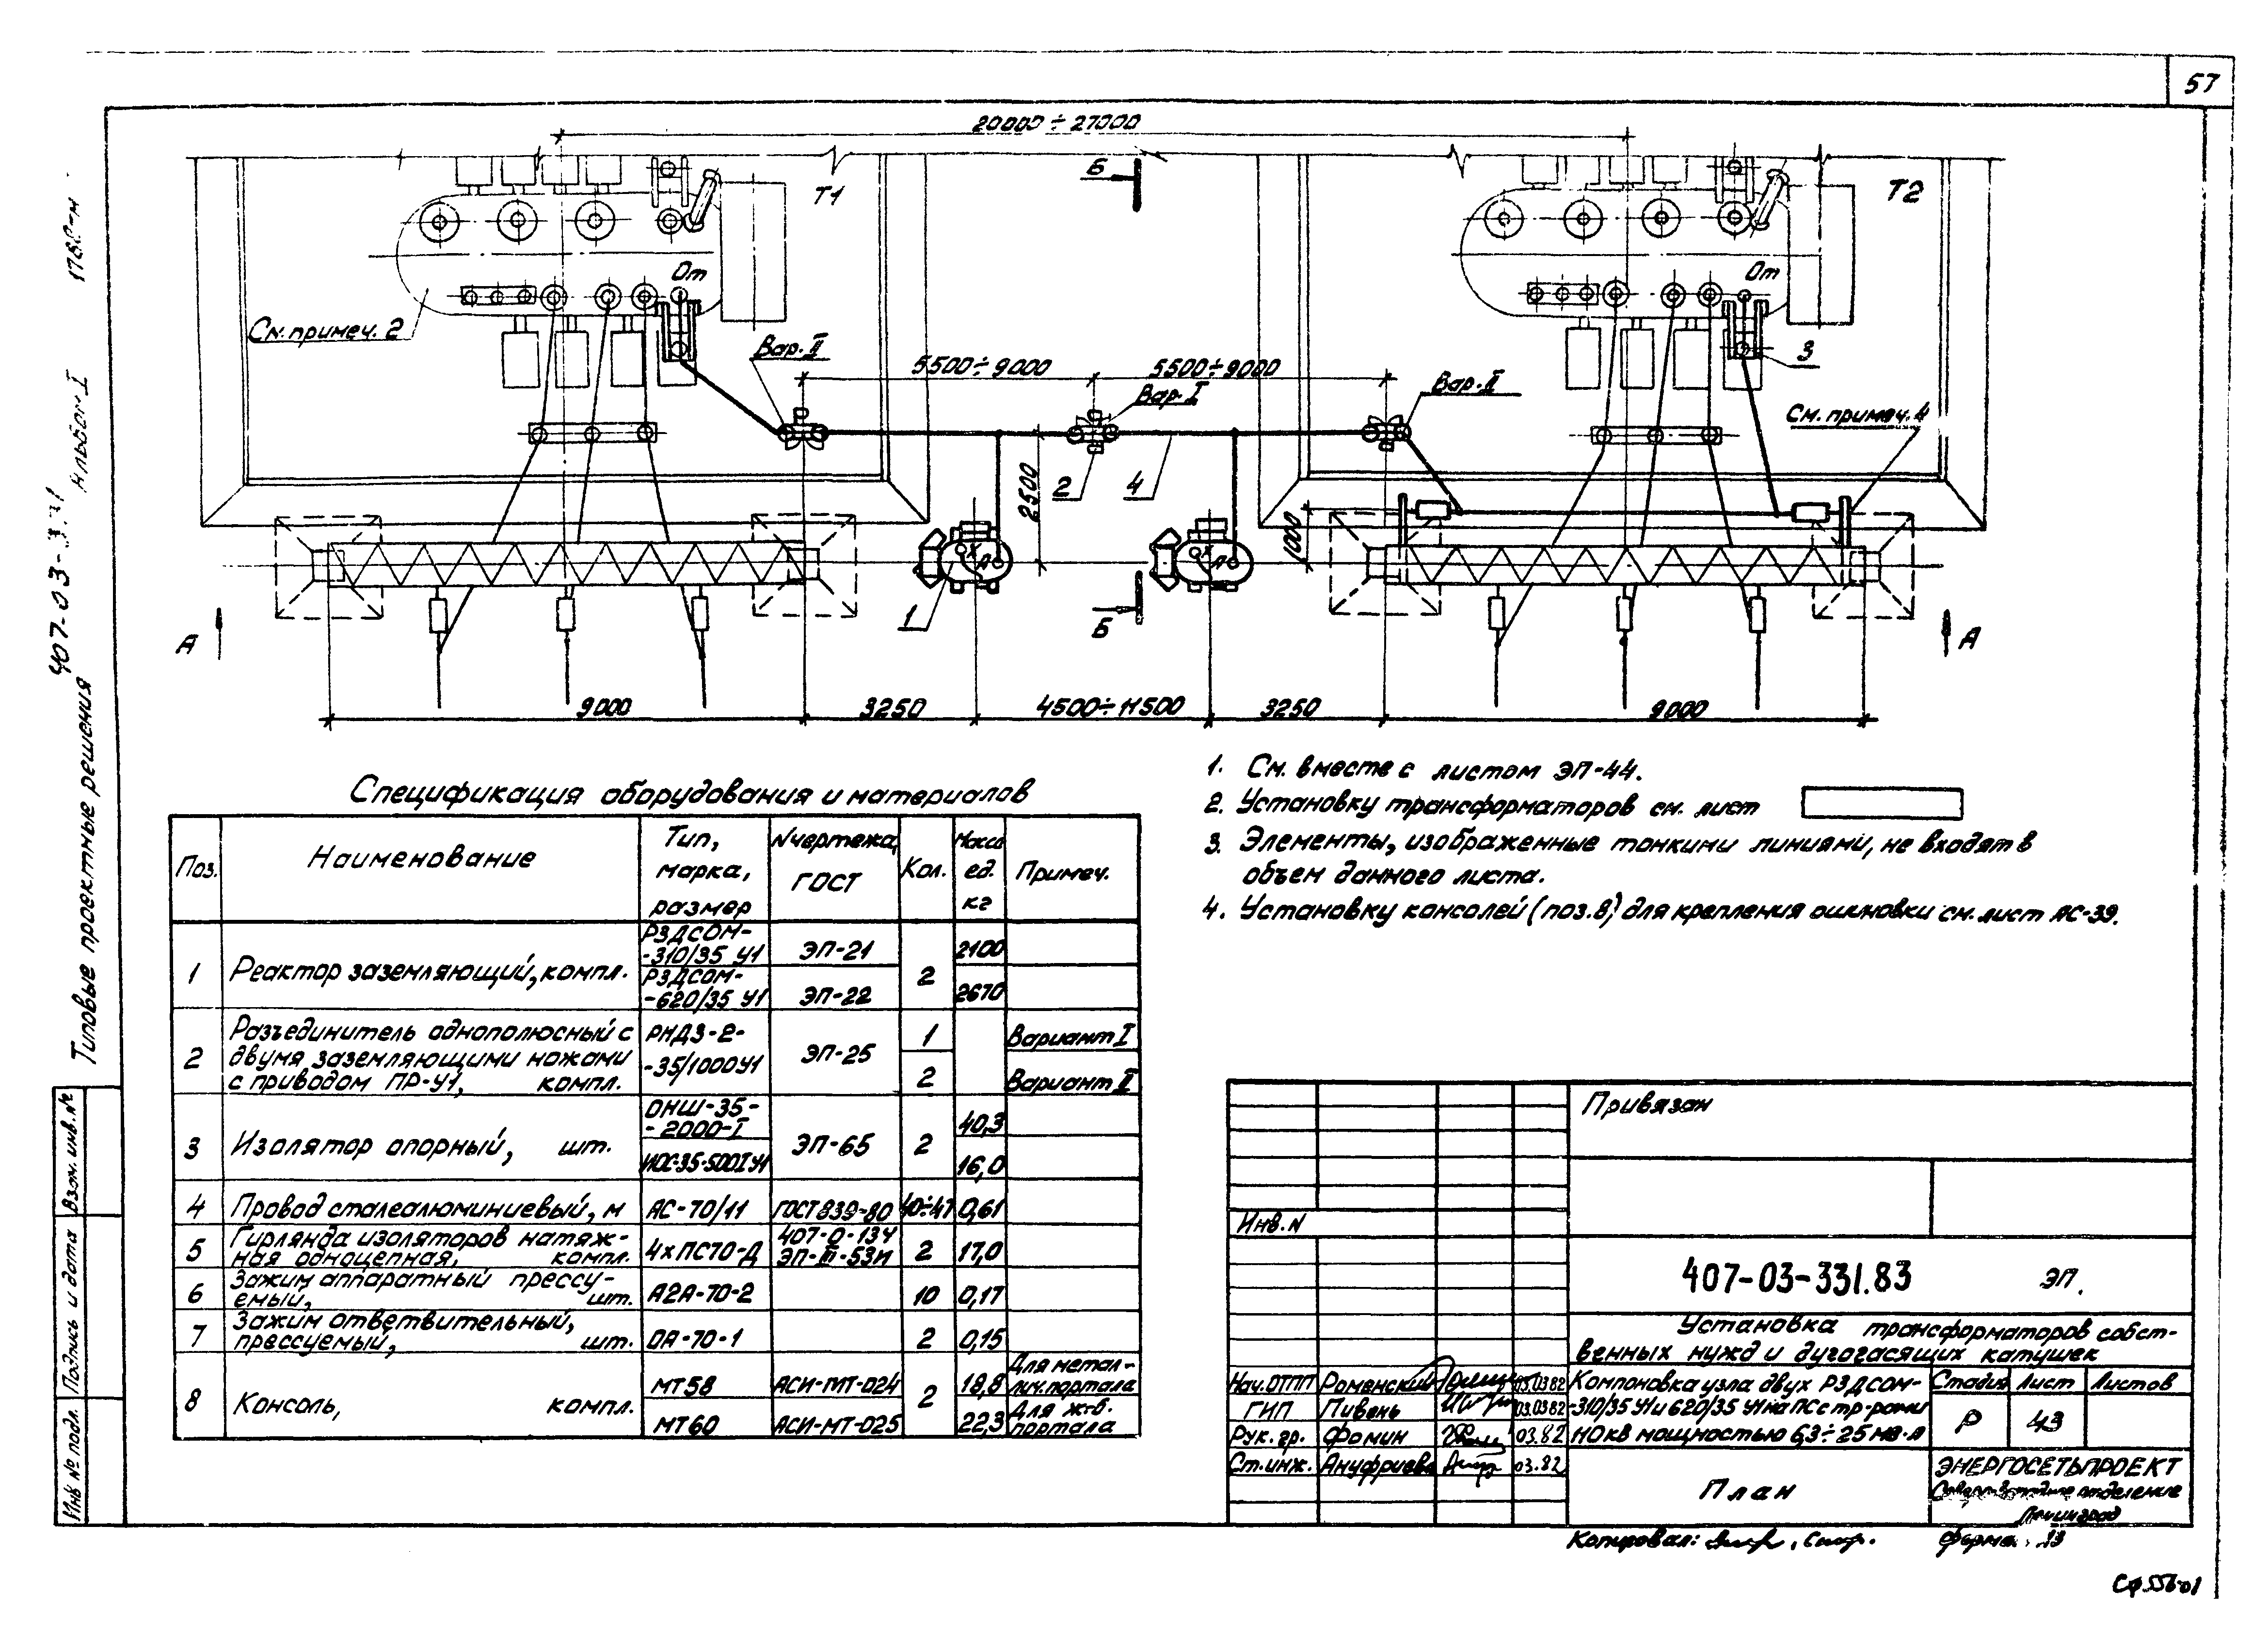 57
20000÷27000
Б
Т1
Т2
От
От
См. примеч. 2
Вар. II
5500÷9000
5500÷9000
Вар. I
Вар. II
3
См. примеч. 4
2500
2
4
1000
Х
А
Х
А
1
Б
А
А
9000
3250
4500÷11500
3250
9000
Типовые проектные решения
Альбом I
Взам. инв. №
Подпись и дата
Инв № подл.
Спецификация оборудования и материалов
Поз. Наименование Тип, марка, размер N чертежа, ГОСТ Кол. Масса ед. кг Примеч.
1 Реактор заземляющий, компл. РЗДСОМ-310/35 У1 ЭП-21 2 2100
РЗДСОМ-620/35 У1 ЭП-22 2670
2 Разъединитель однополюсный с двумя заземляющими ножами с приводом ПР-У1, компл. РНДЗ-2-35/1000У1 ЭП-25 1 Вариант I
2 Вариант II
3 Изолятор опорный, шт. ОНШ-35-2000-I ЭП-65 2 40,3
ИОС-35-500I У1 16,0
4 Провод сталеалюминиевый, м АС-70/11 ГОСТ 839-80 40÷47 0,61
5 Гирлянда изоляторов натяжная одноцепная, компл. 4хПС70-Д 2 17,0
6 Зажим аппаратный прессуемый, шт. А2А-70-2 10 0,17
7 Зажим ответвительный, прессуемый, шт. ОА-70-1 2 0,15
8 Консоль, компл. МТ58 АСИ-МТ-024 2 18,8 Для метал-лич. портала
МТ60 АСИ-МТ-025 22,3 Для ж-б. портала
1. См. вместе с листом ЭП-44.
2. Установку трансформаторов см. лист
3. Элементы, изображенные тонкими линиями, не входят в
объем данного листа.
4. Установку консолей (поз. 8) для крепления ошиновки см. лист АС-39.
Привязан
Инв. N
407-03-331.83 ЭП.
Установка трансформаторов собст-
венных нужд и дугогасящих катушек
Нач. ОТПП Роменский 05.03.82
ГИП Пивень 03.03.82
Рук. гр. Фомин 03.82
Ст. инж. Ануфриева 03.82
Компоновка узла двух РЗДСОМ-
-310/35 У1 и 620/35 У1 на ПС с тр-рами
110кв мощностью 6,3÷25 мв·А
Стадия Лист Листов
Р 43
План
ЭНЕРГОСЕТЬПРОЕКТ
отделение
Ленинград
Копировал: